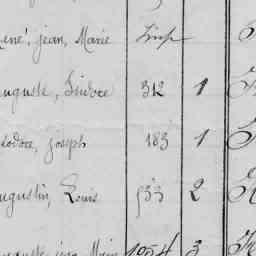 René, jean, Marie Supp
Auguste, Isidore 312 1
Théodore, joseph 183 1
Augustin, Louis 533 2
Auguste, jean, Marie 1054 3